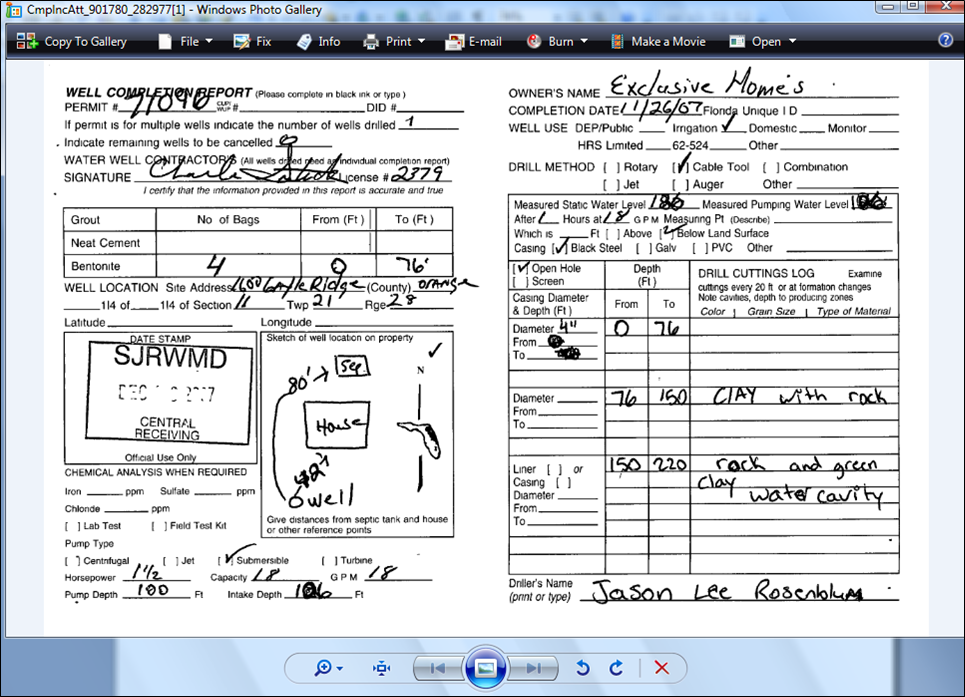 CmpIncAtt_901780_282977[1] - Windows Photo Gallery
Copy To Gallery File Fix Info Print E-mail Burn Make a Movie Open ?
WELL COMPLETION REPORT (Please complete in black ink or type)
PERMIT # 71090 CUP/WUP # DID #
If permit is for multiple wells indicate the number of wells drilled 1
Indicate remaining wells to be cancelled 0
WATER WELL CONTRACTOR'S (All wells drilled need an individual completion report)
SIGNATURE License # 2379
I certify that the information provided in this report is accurate and true
Grout No of Bags From (Ft) To (Ft)
Neat Cement
Bentonite 4 0 76'
WELL LOCATION Site Address Ridge (County) ORANGE
1/4 of 1/4 of Section 11 Twp 21 Rge 28
Latitude Longitude
DATE STAMP
SJRWMD
DEC 2007
CENTRAL
RECEIVING
Official Use Only
Sketch of well location on property
N
80' Sep
House
well
Give distances from septic tank and house
or other reference points
CHEMICAL ANALYSIS WHEN REQUIRED
Iron ppm Sulfate ppm
Chloride ppm
[ ] Lab Test [ ] Field Test Kit
Pump Type
[ ] Centrifugal [ ] Jet [✓] Submersible [ ] Turbine
Horsepower 1 1/2 Capacity 18 G P M 18
Pump Depth 100 Ft Intake Depth Ft
OWNER'S NAME Exclusive Home's
COMPLETION DATE 11/26/07 Florida Unique I D
WELL USE DEP/Public Irrigation ✓ Domestic Monitor
HRS Limited 62-524 Other
DRILL METHOD [ ] Rotary [✓] Cable Tool [ ] Combination
[ ] Jet [ ] Auger Other
Measured Static Water Level Measured Pumping Water Level
After 1 Hours at 18 G P M Measuring Pt (Describe)
Which is Ft [ ] Above [✓] Below Land Surface
Casing [✓] Black Steel [ ] Galv [ ] PVC Other
[✓] Open Hole
[ ] Screen
Depth
(Ft)
DRILL CUTTINGS LOG Examine
cuttings every 20 ft or at formation changes
Note cavities, depth to producing zones
Casing Diameter
& Depth (Ft)
From To
Color Grain Size Type of Material
Diameter 4" 0 76
From
To
Diameter 76 150 CLAY with rock
From
To
Liner [ ] or 150 220 rock and green
Casing [ ] clay
Diameter water cavity
From
To
Driller's Name
(print or type) Jason Lee Rosenblum